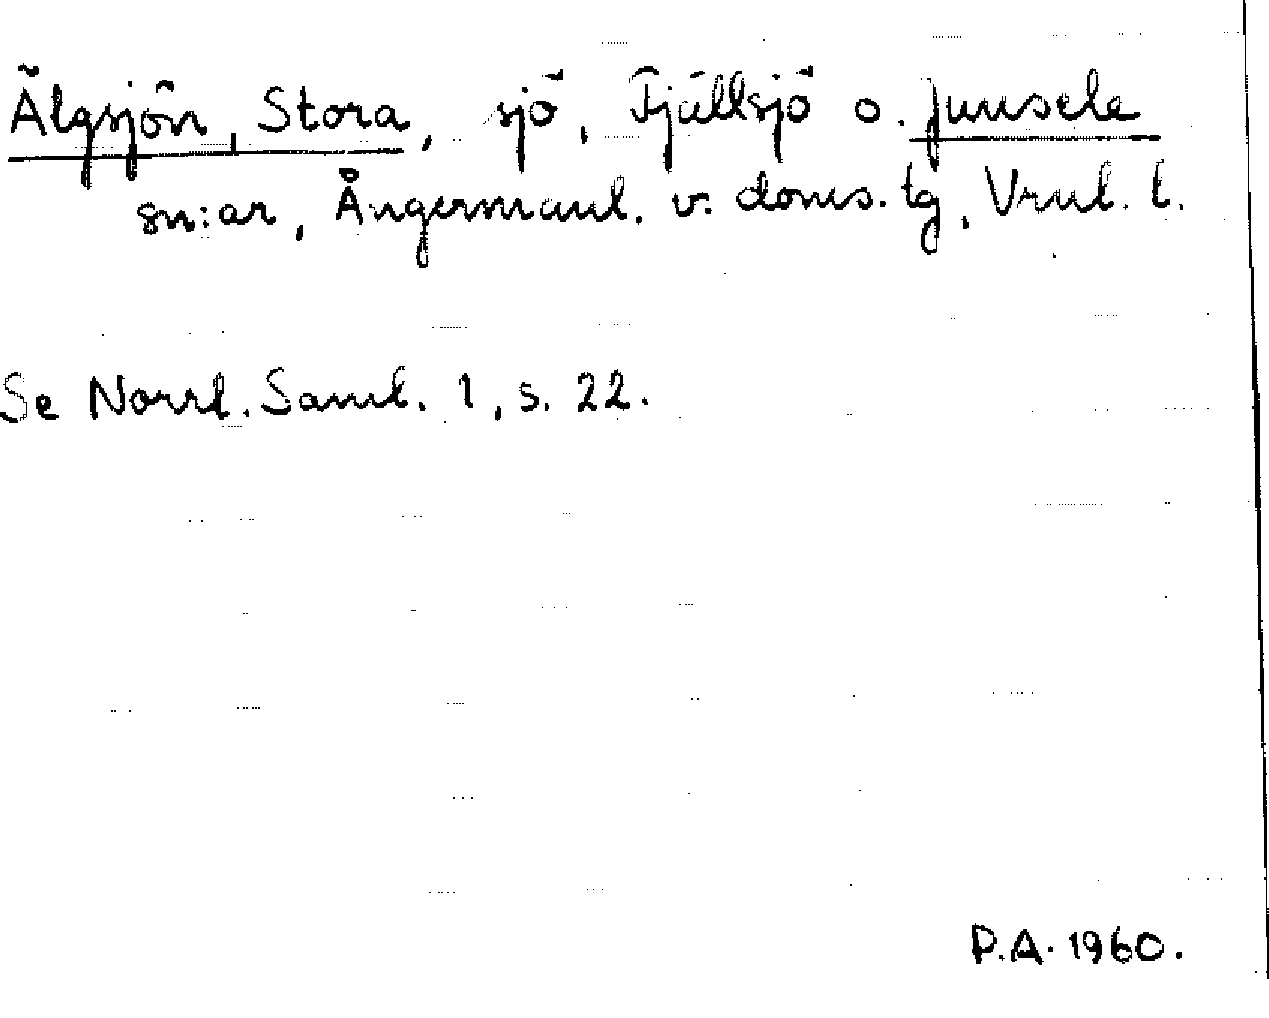 Älgsjön, Stora, sjö, Fjällsjö o. Junsele
sn:ar, Ångermanl. v. doms. tg, Vrnl. l.
Se Norrl. Saml. 1, s. 22.
P.A. 1960.